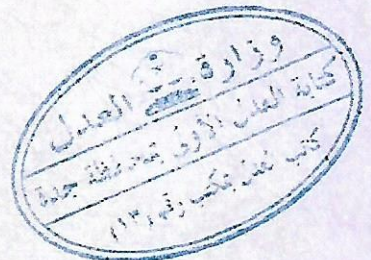 وزارة العدل
كتابة العدل الأولى بمحافظة جدة
كاتب عدل بمكتب رقم (١٣)